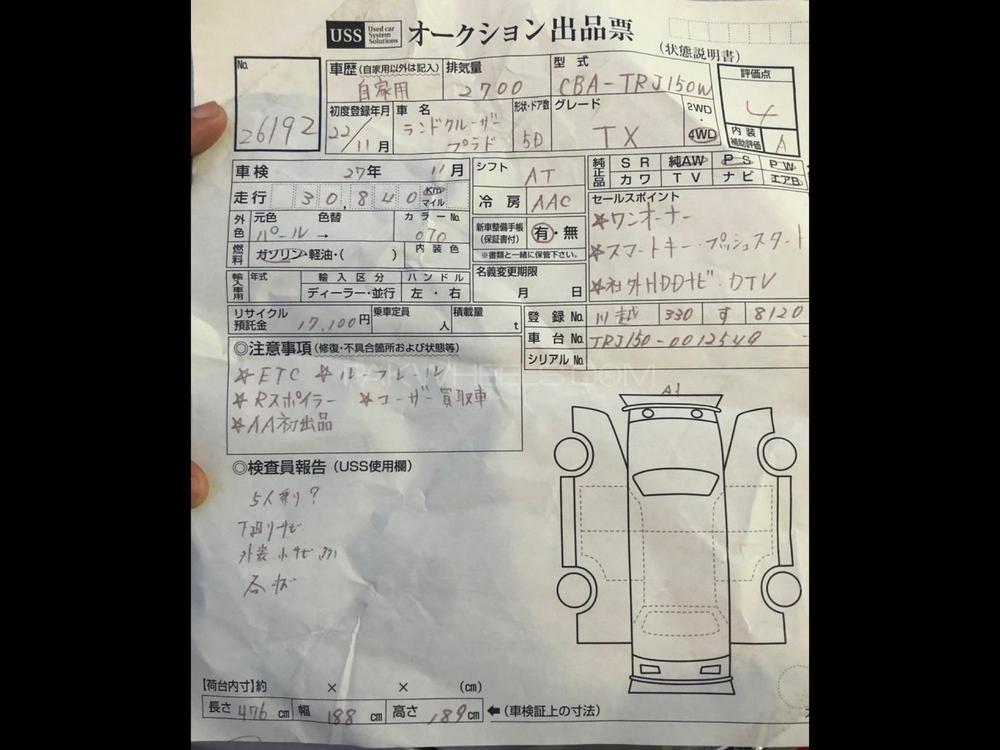 USS Used car System Solutions オークション出品票
(状態説明書)
No. 26192
車歴 (自家用以外は記入) 自家用
排気量 2700
型式 CBA-TRJ150W
評価点 4
初度登録年月 22/11月
車名 ランドクルーザー プラド
形状・ドア数 5D
グレード TX
2WD・4WD
内装補助評価 A
車検 27年 11月
シフト AT
純正品 SR 純AW PS PW
カワ TV ナビ エアB
走行 30,840 Km マイル
冷房 AAC
セールスポイント
★ワンオーナー
★スマートキー・プッシュスタート
★社外HDDナビ・DTV
外色 元色 パール → 色替 カラーNo. 070
燃料 ガソリン・軽油・( ) 内装色
新車整備手帳 (保証書付) 有・無
※書類と一緒に保管下さい。
輸入車用 年式 輸入区分 ハンドル
ディーラー・並行 左・右
名義変更期限 月 日
リサイクル預託金 17,100円 乗車定員 人 積載量 t
登録No. 川越 330 す 8120
車台No. TRJ150-0012549
シリアルNo.
◎注意事項 (修復・不具合箇所および状態等)
★ETC ★ルーフレール
★Rスポイラー ★ユーザー買取車
★AA初出品
A1
◎検査員報告 (USS使用欄)
5人乗り?
下廻りサビ
外装小サビ
【荷台内寸】約 × × (cm)
長さ 476 cm 幅 188 cm 高さ 189 cm ←(車検証上の寸法)